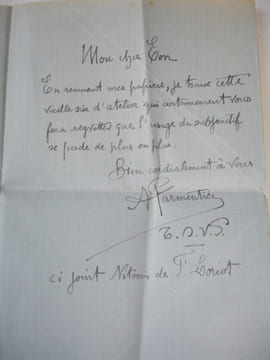 Mon cher Con
En remuant mes papiers, je trouve cette
vieille scie d'atelier qui certainement vous
fera regretter que l'usage du subjonctif
se perde de plus en plus.
Bien cordialement à vous
A Parmentier
T. S. V. P.
ci joint de P. Loriot